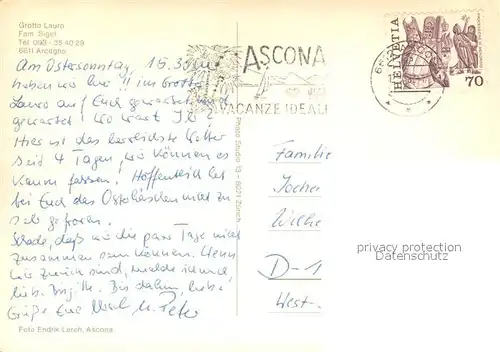 Grotto Lauro
Fam. Sigel
Tel. 093 - 35 40 29
6611 Arcegno
Am Ostersonntag 15.30 Uhr
haben wir hier !! im Grotto
Lauro auf Euch gewartet und
gewartet. Wo wart Ihr?
Hier ist das herrlichste Wetter
seit 4 Tagen, wir können es
kaum fassen! Hoffentlich ist
bei Euch das Osterhäschen nicht zu
sehr gefroren.
Schade, daß wir die paar Tage nicht
zusammen sein können. Wenn
wir zurück sind, melde ich mich,
lieb. Bis dahin, liebe
Grüße Eure u. Peter
Foto Endrik Lerch, Ascona
ASCONA
VACANZE IDEALI
HELVETIA
70
8021 Zürich
Familie
Jochen
D-1
West-
privacy protection
Datenschutz